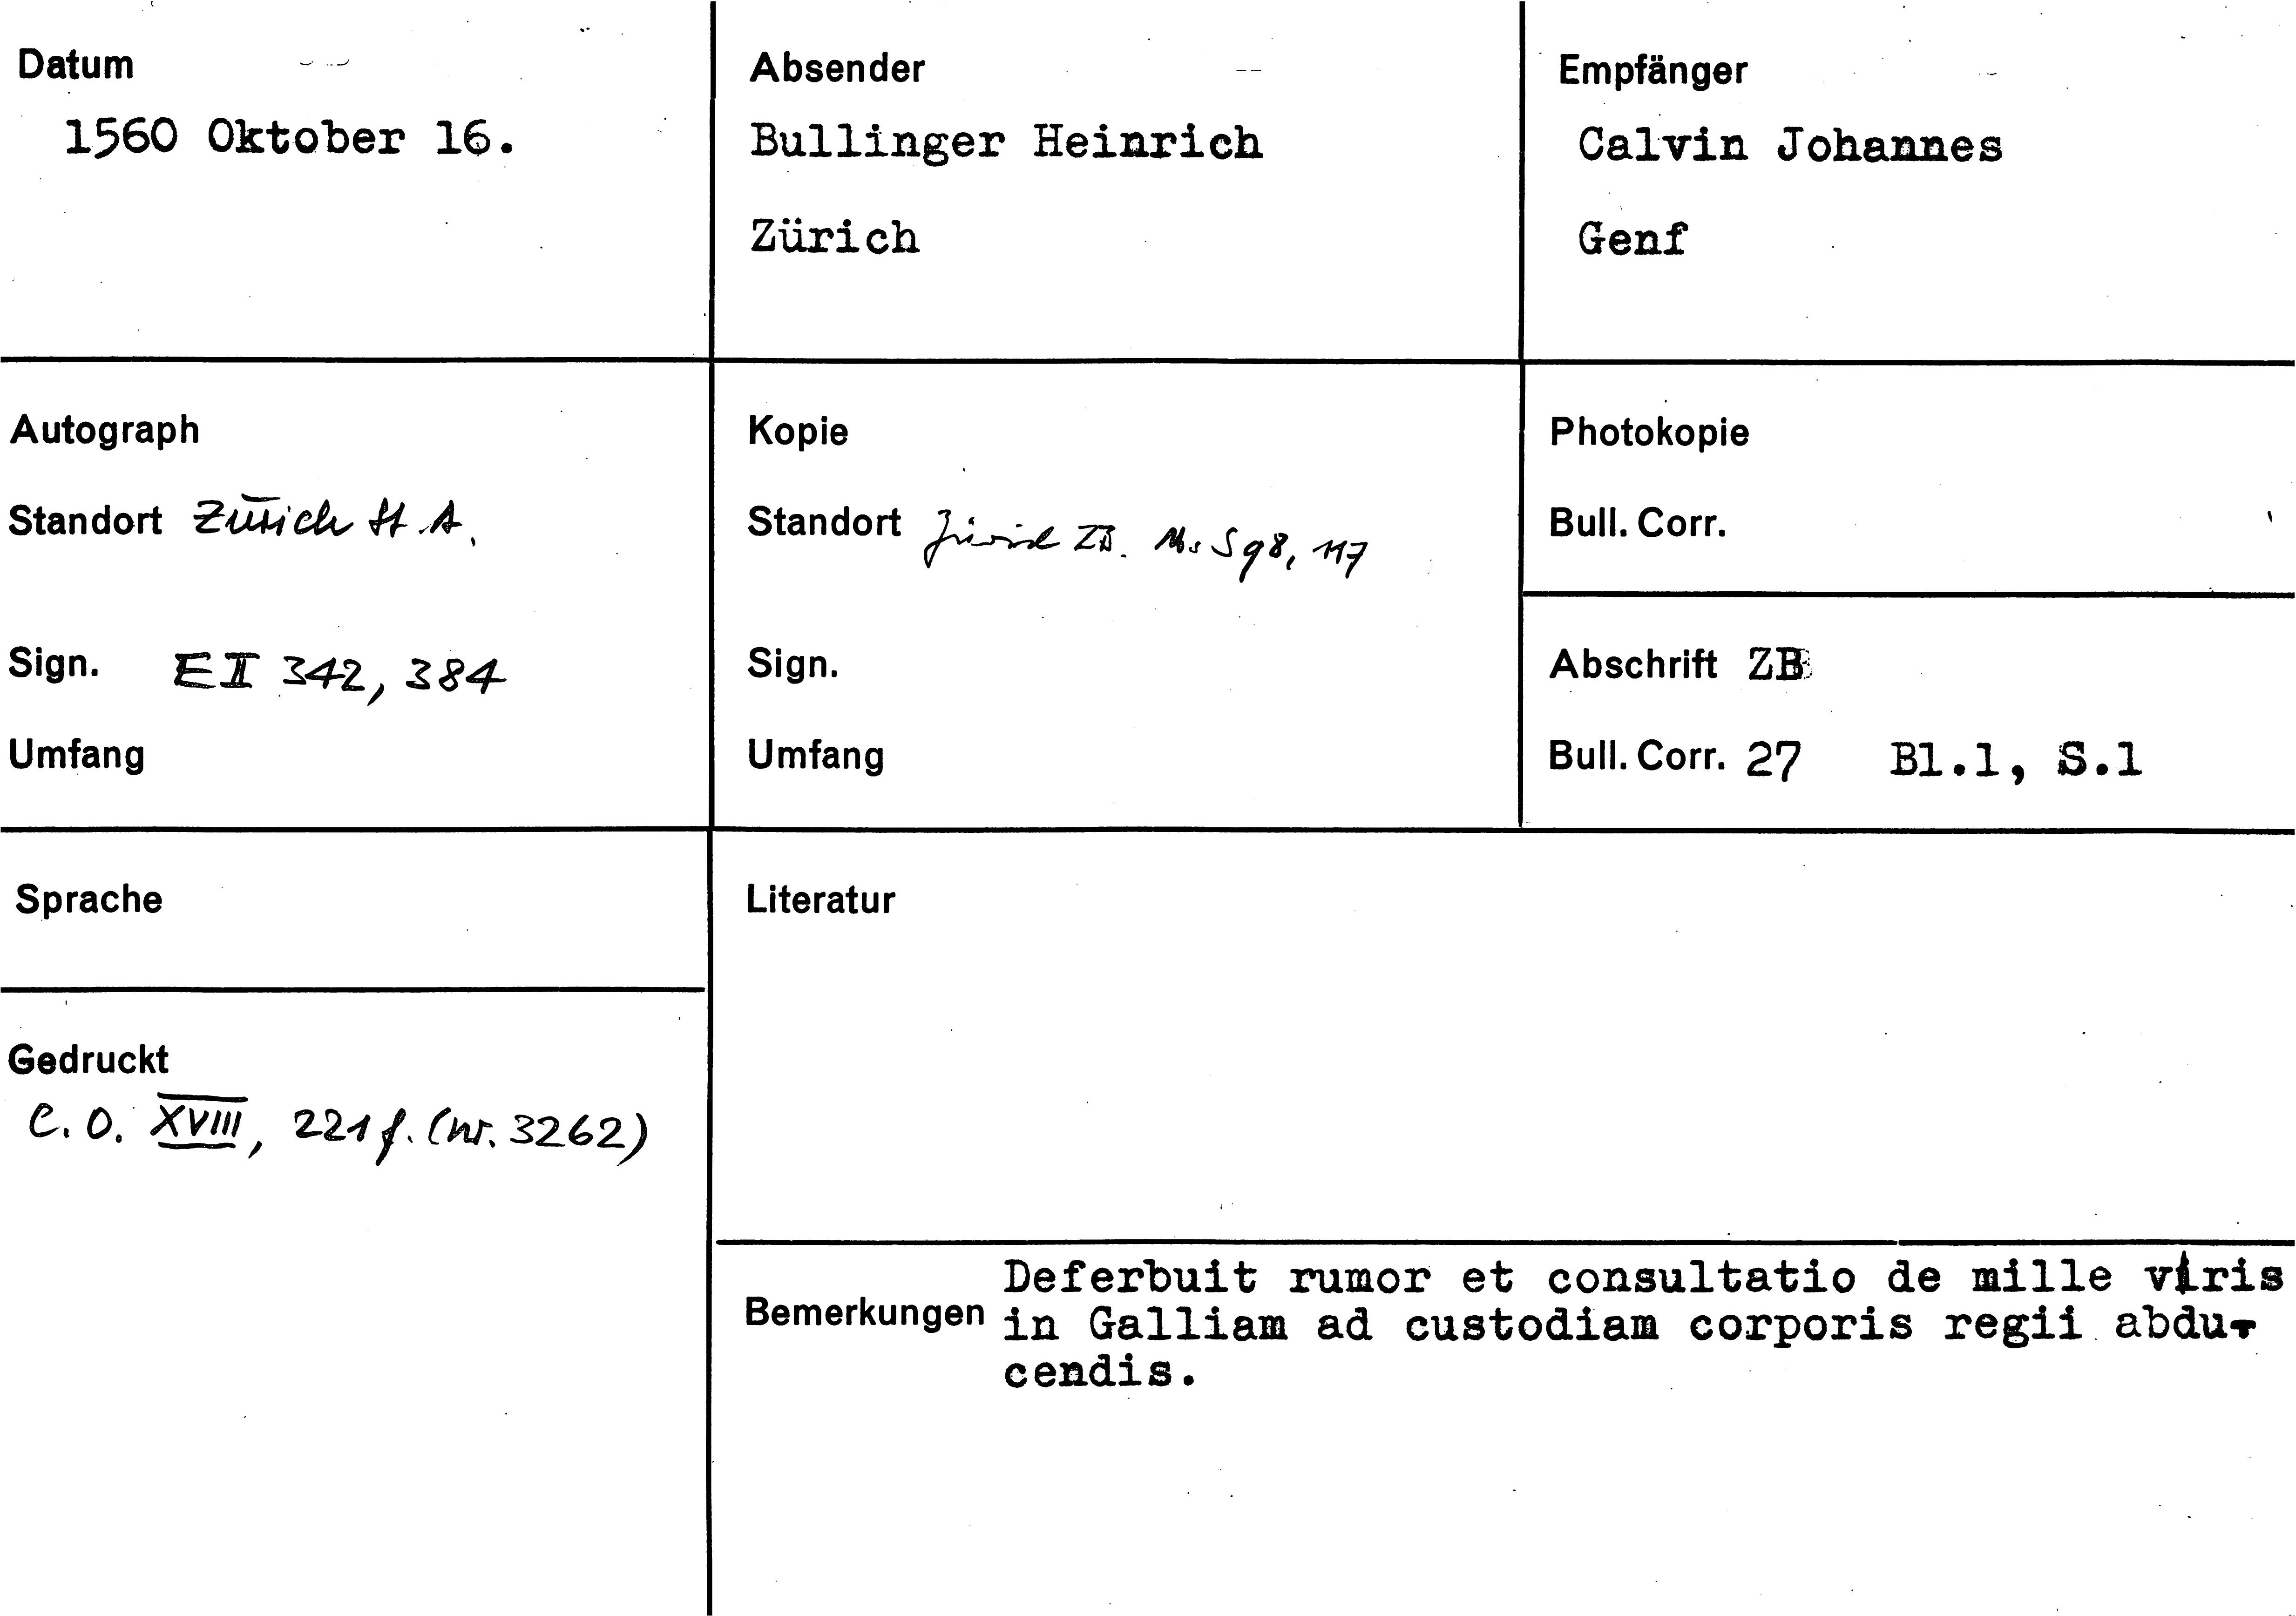 Datum
1560 Oktober 16.
Absender
Bullinger Heinrich
Zürich
Empfänger
Calvin Johannes
Genf
Autograph
Standort Zürich St A.
Sign. E II 342, 384
Umfang
Kopie
Standort Zürich ZB. Ms S 98, 117
Sign.
Umfang
Photokopie
Bull. Corr.
Abschrift ZB
Bull. Corr. 27 Bl.1, S.1
Sprache
Gedruckt
C. O. XVIII, 221 f. (nr. 3262)
Literatur
Bemerkungen
Deferbuit rumor et consultatio de mille viris
in Galliam ad custodiam corporis regii abdu-
cendis.